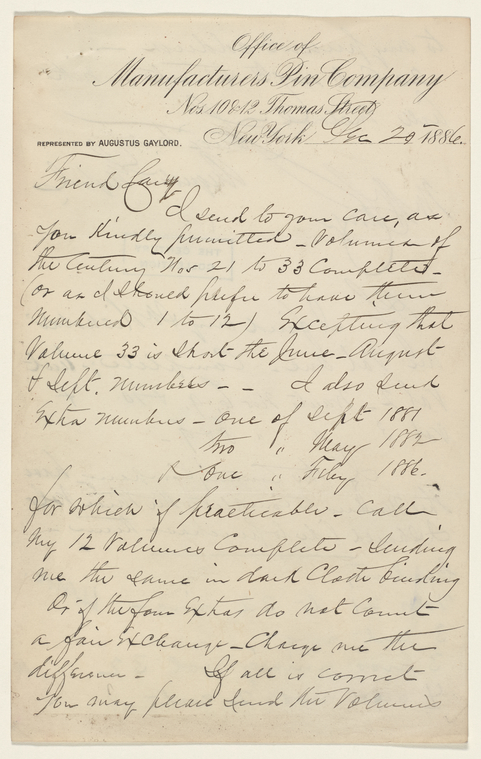 Office of
Manufacturers Pin Company
Nos 10 & 12 Thomas Street
New York Dec 20 1886.
REPRESENTED BY AUGUSTUS GAYLORD.
Friend
I send to your care, as
you Kindly permitted - Volumes of
the Century Nos 21 to 33 Complete -
(or as I should prefer to have them
numbered 1 to 12) Excepting that
Volume 33 is short the June - August
& Sept. numbers - - I also send
Extra numbers - one of Sept 1881
two " May 1882
& One " Feby 1886.
for which if practicable - Call
my 12 Volumes Complete - sending
me the same in dark Cloth binding
Or if the four Extras do not Count
a fair Exchange - Charge me the
difference - If all is correct
you may please send the Volumes